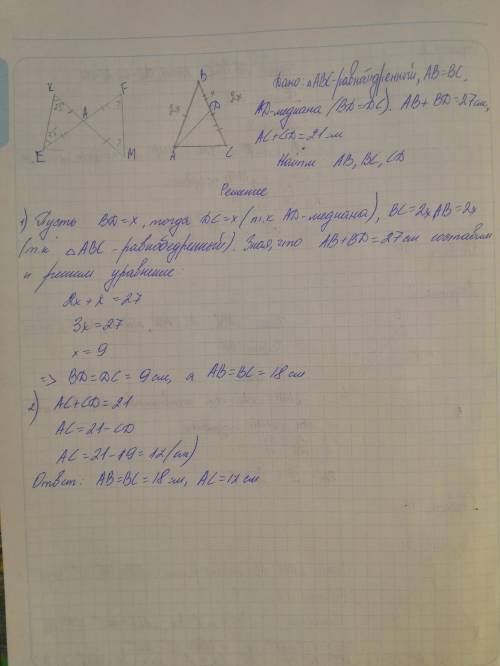 K
F
A
E
M
35
B
D
2x
2x
A
C
Дано: △ABC-равнобедренной, AB=BC,
AD-медиана (BD=DC). AB+BD=27см,
AC+CD=21 м
Найти AB, BC, CD
Решение
1) Пусть BD=x, тогда DC=x (т.к AD-медиана), BC=2x, AB=2x
(т.к △ABC - равнобедренной). Зная, что AB+BD=27см составим
и решим уравнение:
2x+x=27
3x=27
x=9
=> BD=DC=9см, а AB=BC=18 см
2) AC+CD=21
AC=21-CD
AC=21-19=12(см)
Ответ: AB=BC=18 м, AC=12 см